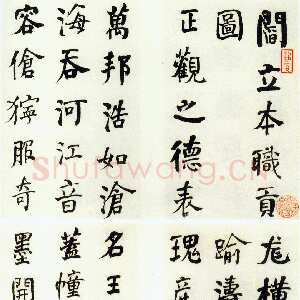 閻立本職貢
圖
正觀之德來
萬邦浩如滄
海吞河江音
容傖獰服奇
尨橫
踰濤
瑰產
名王
蓋幢
墨開
Shufawang.cn